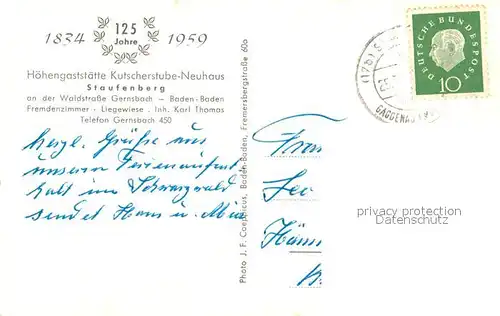 1834 125 Jahre 1959
Höhengaststätte Kutscherstube-Neuhaus
Staufenberg
an der Waldstraße Gernsbach — Baden-Baden
Fremdenzimmer · Liegewiese · Inh. Karl Thomas
Telefon Gernsbach 450
herzl. Grüße aus
unserm Ferienaufent
halt im Schwarzwald
sendet Hans u.
Photo J. F. Caephicus, Baden-Baden, Fremersbergstraße 60a
DEUTSCHE BUNDESPOST
10
(17b)
GAGGENAU
Frau
Leo
privacy protection
Datenschutz